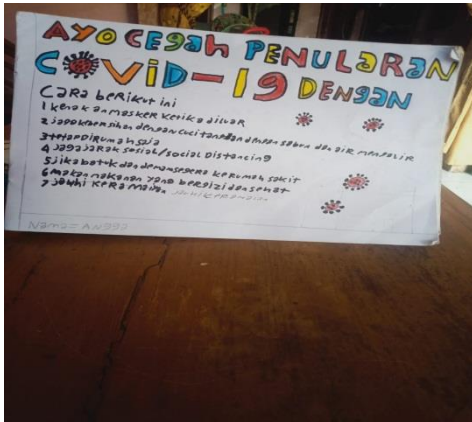 AYO CEGAH PENULARAN
COVID-19 DENGAN
Cara berikut ini
1 kenakan masker ketika diluar
2 jaga kebersihan dengan cuci tangan dengan sabun dan air mengalir
3 tetap Dirumah saja
4 Jaga jarak sosial/social Distancing
5 jika batuk dan demam segera kerumah sakit
6 makan makanan yang bergizi dan sehat
7 jauhi keramaian
Nama = Angga